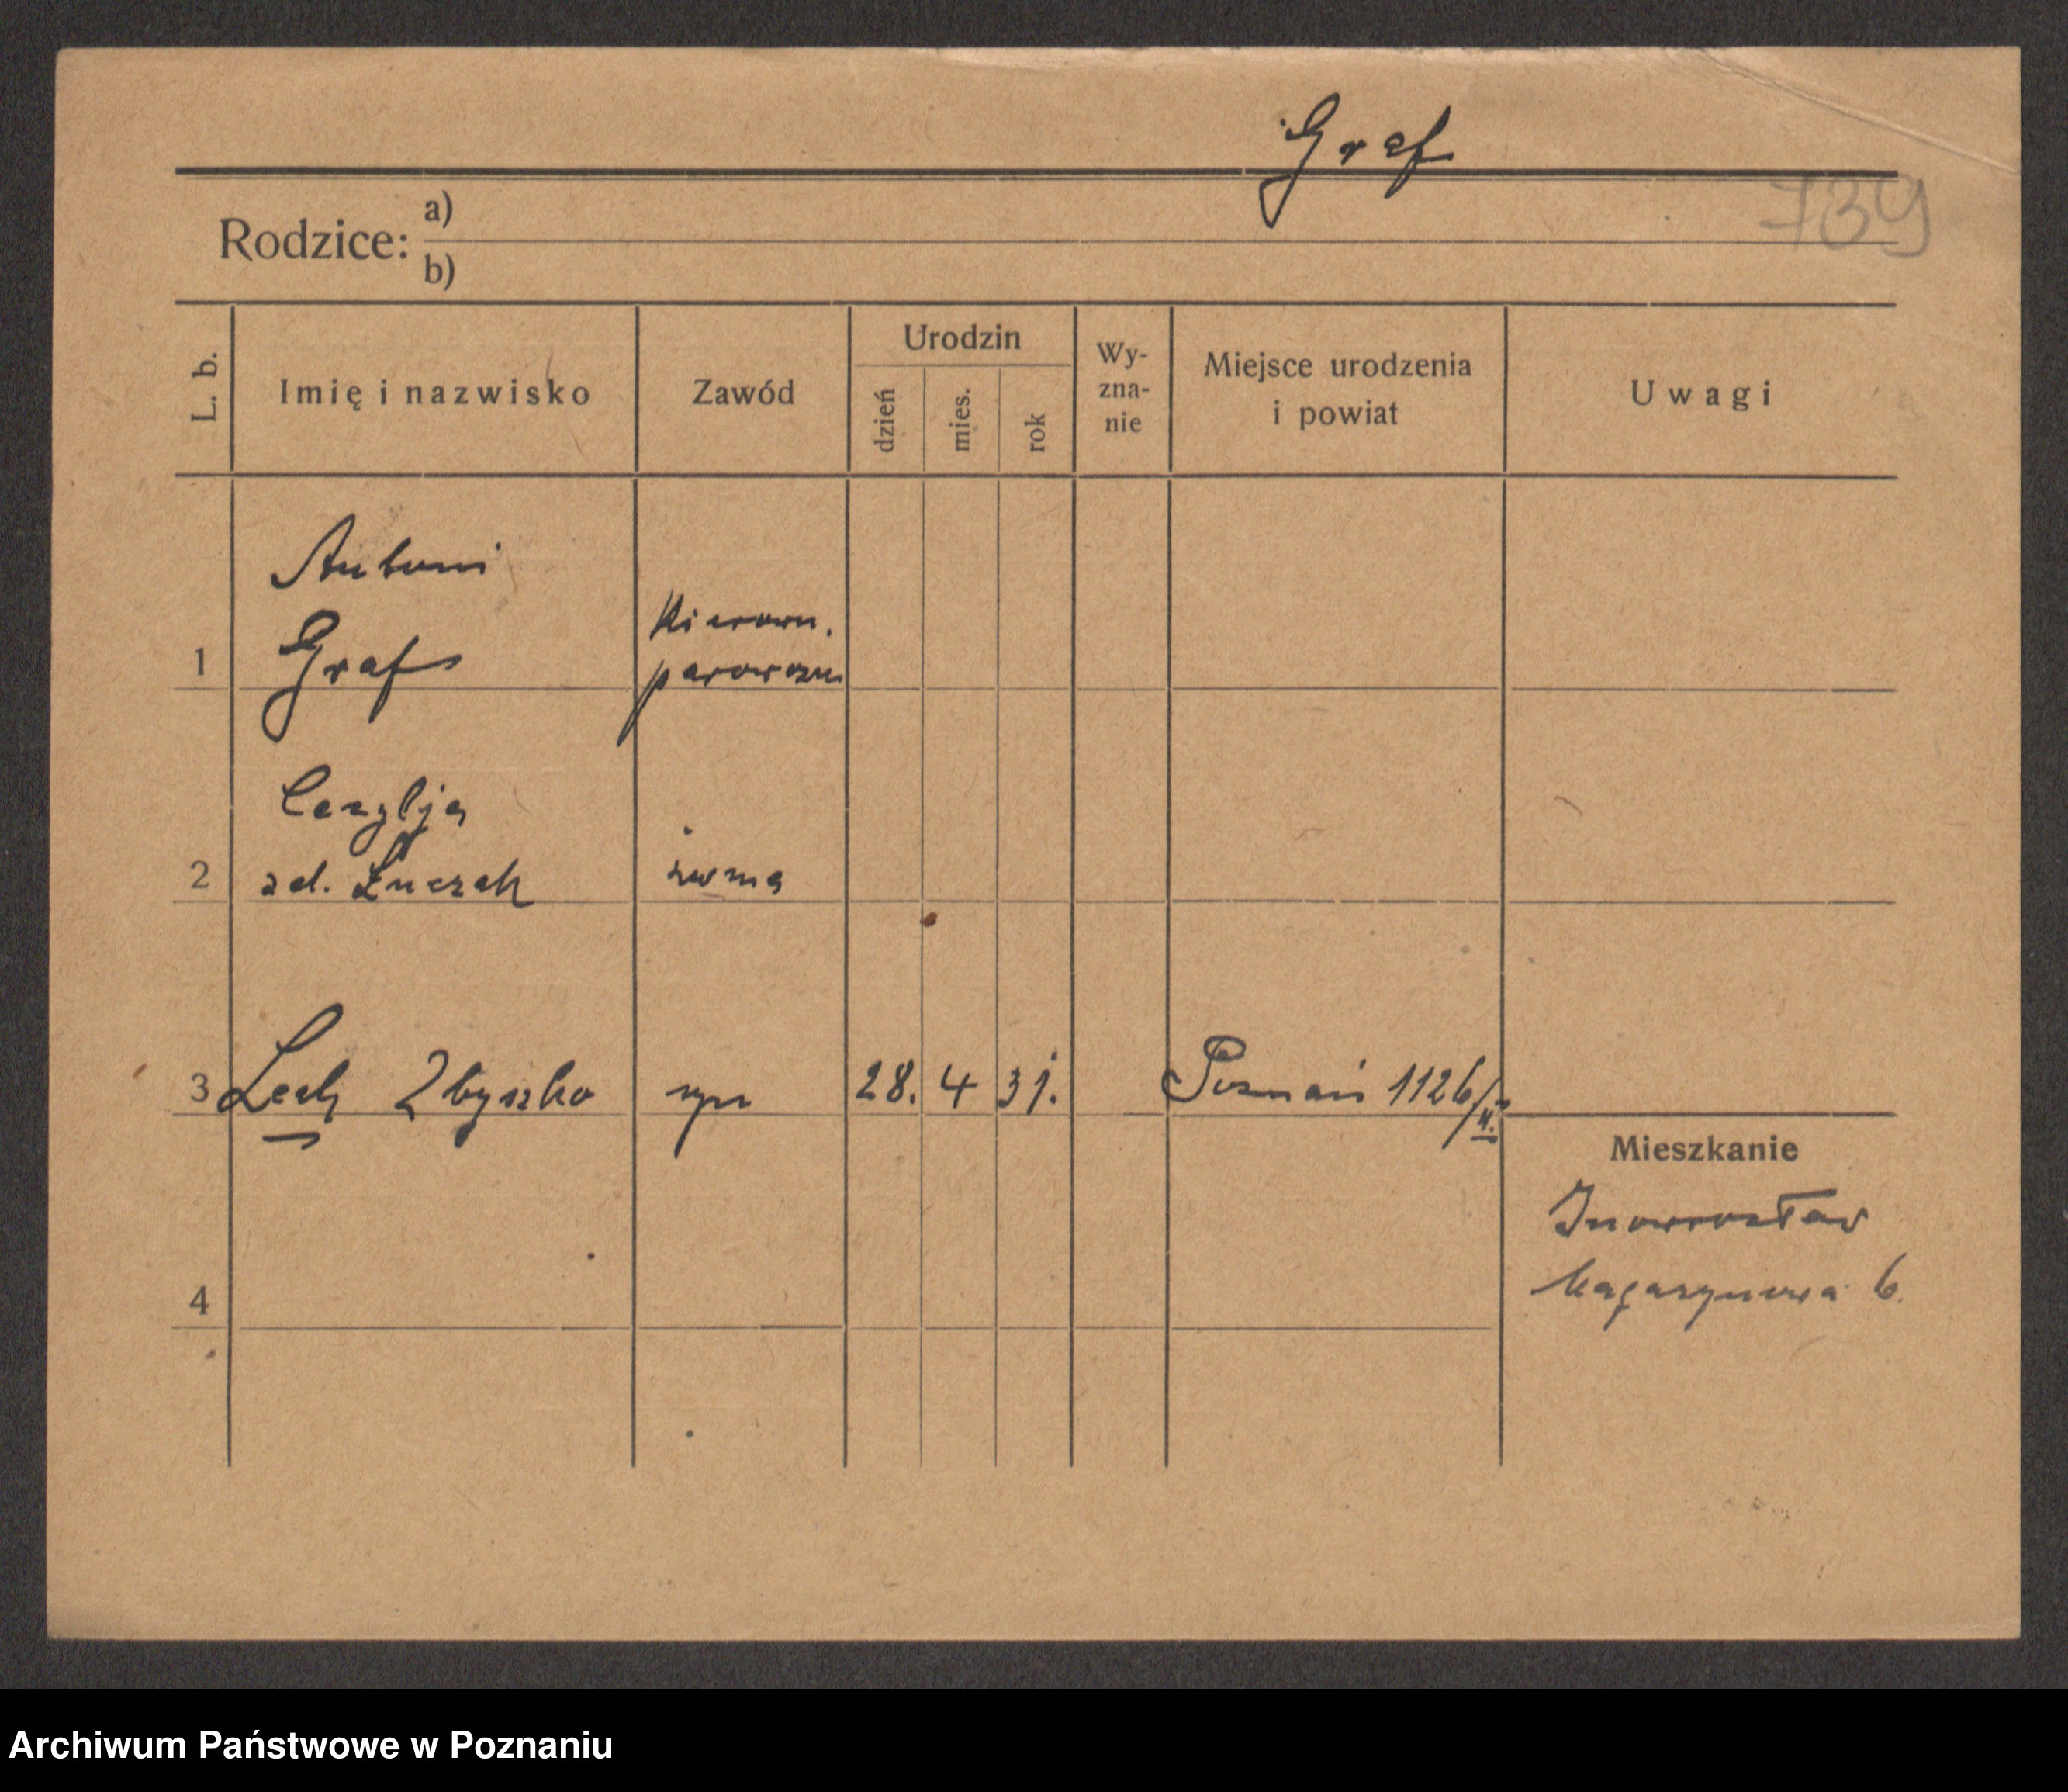 Graf
739
Rodzice: a)
b)
L. b.
Imię i nazwisko
Zawód
Urodzin
dzień
mies.
rok
Wy-
zna-
nie
Miejsce urodzenia
i powiat
Uwagi
Antoni
Kierown.
1 Graf parowozu
Cezylja
2 zd. Łuczak żona
3 Lech Zbyszko syn 28. 4 31. Poznań 1126/II.
Mieszkanie
Inowrocław
Magazynowa 6.
4
Archiwum Państwowe w Poznaniu